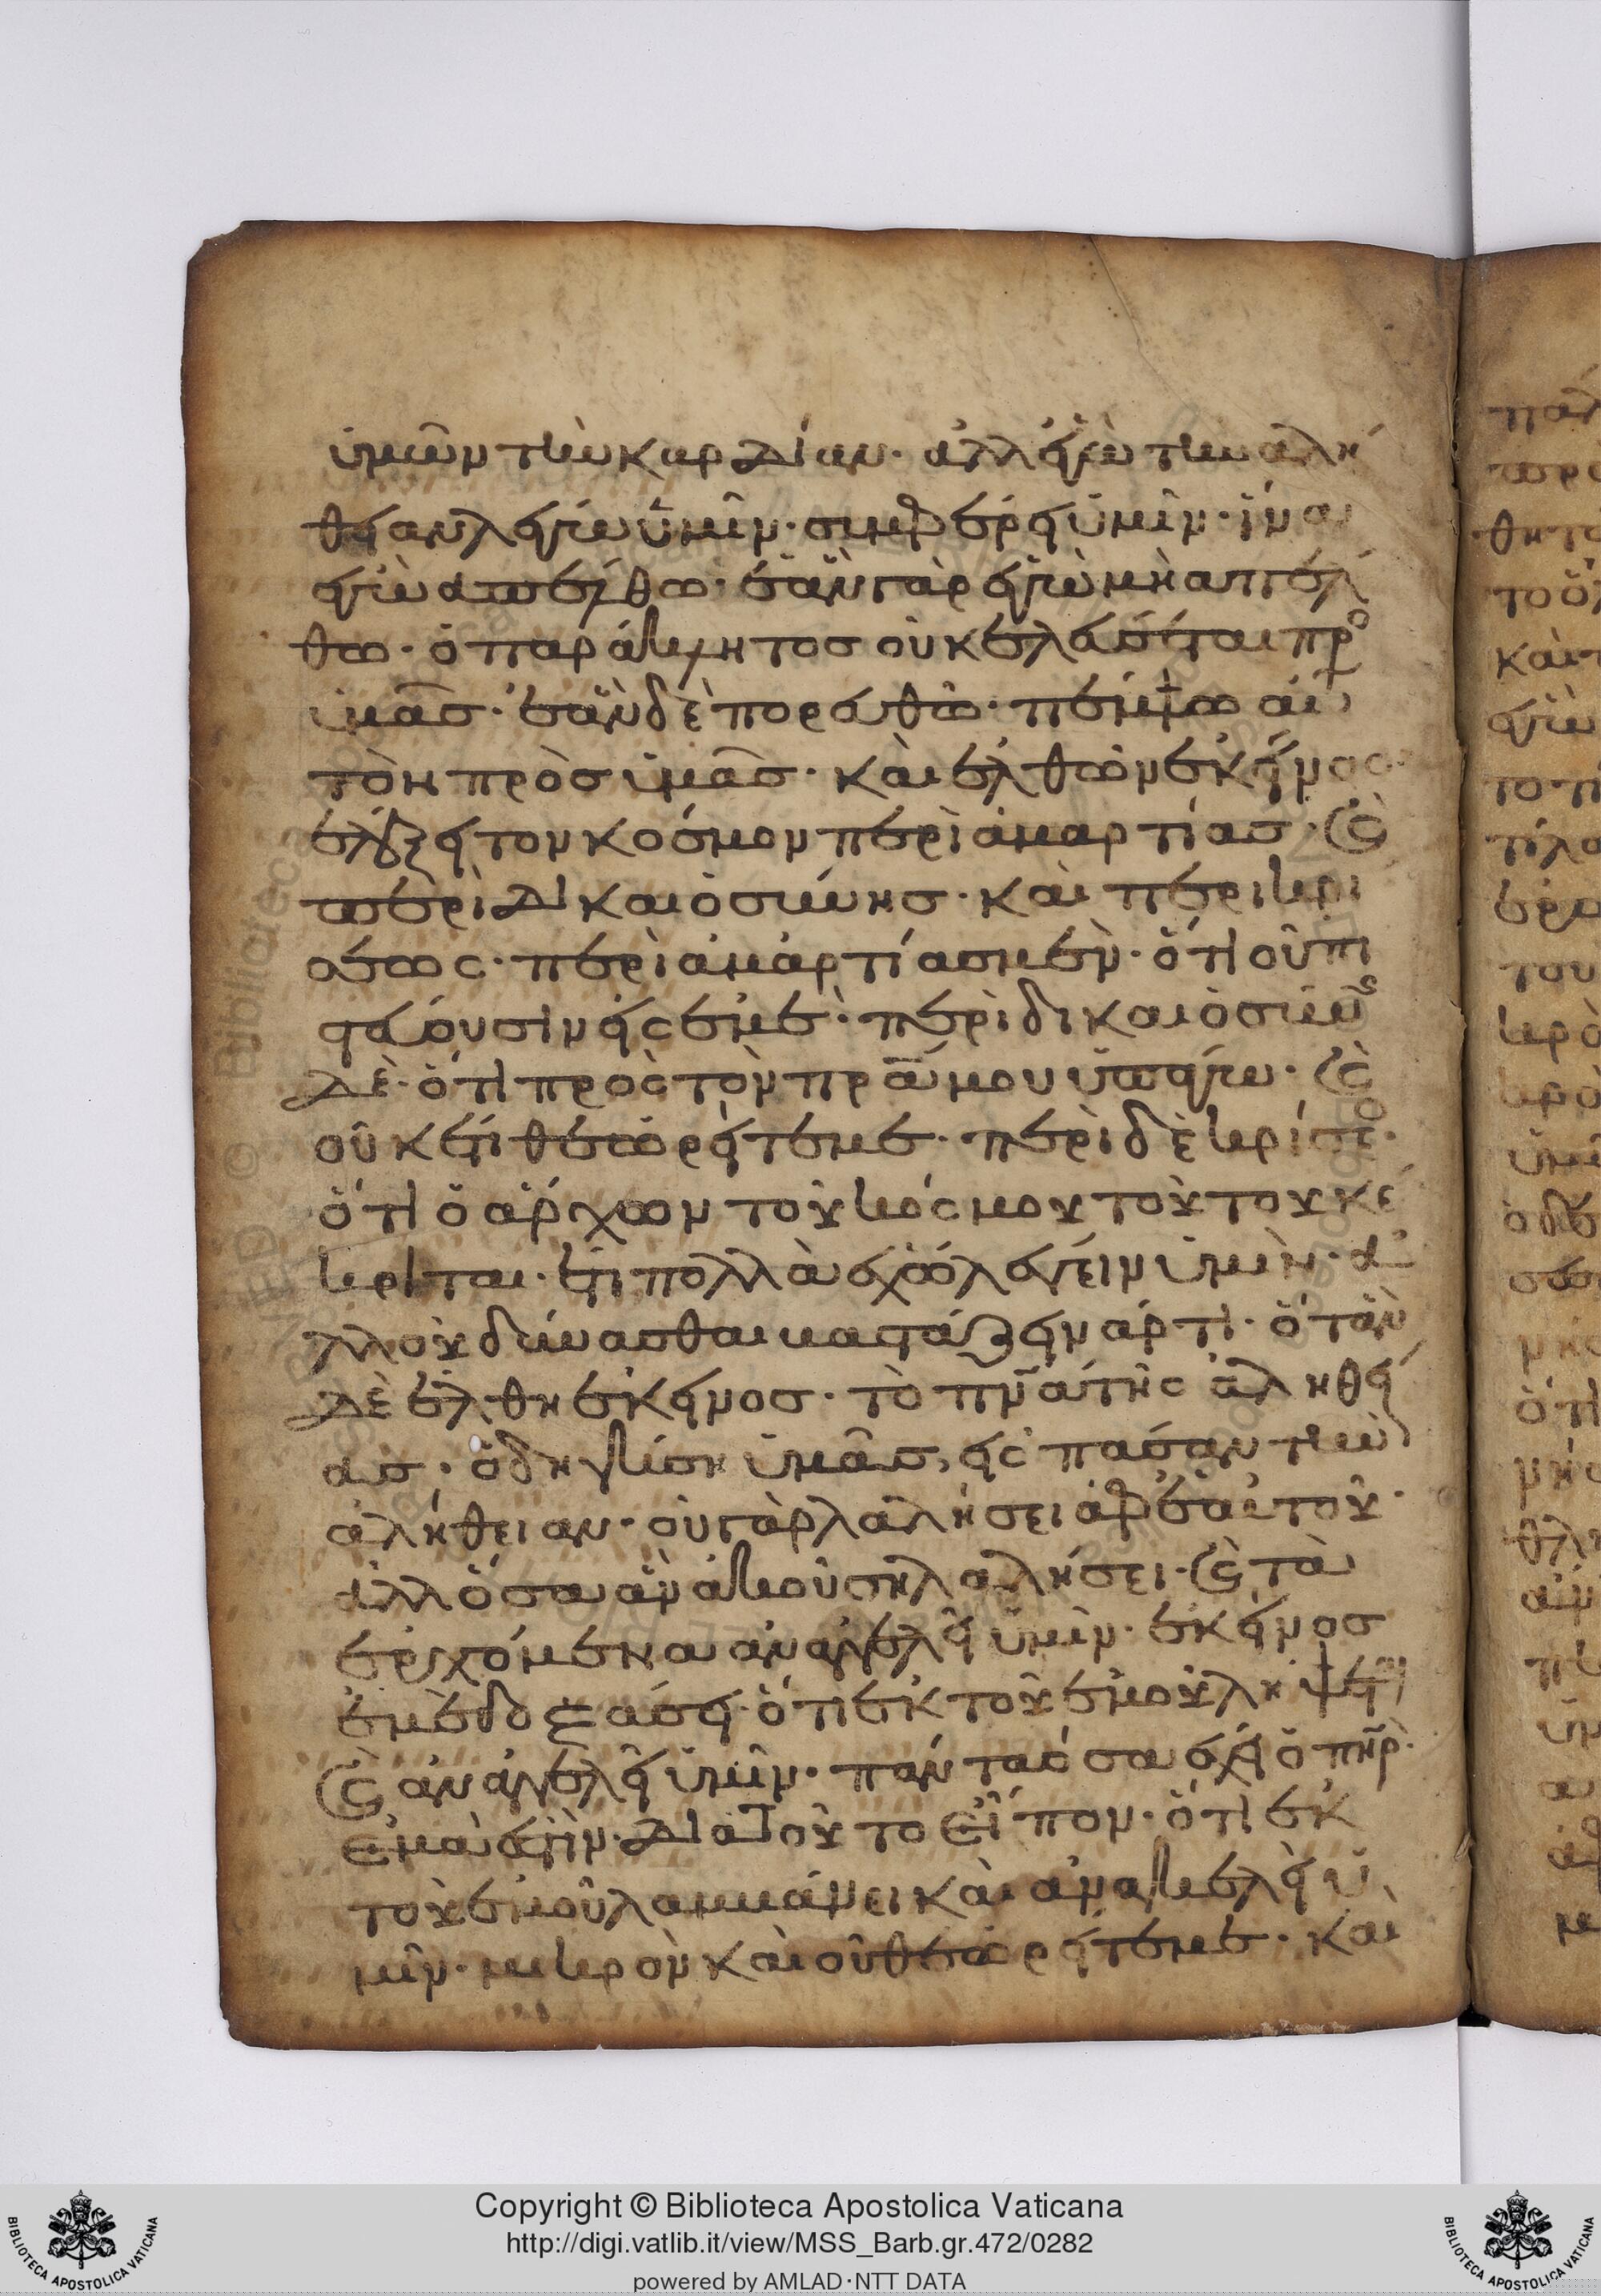 ὑμῶν τὴν καρδίαν· ἀλλ ἐγὼ τὴν αλή
θειαν λέγω ὑμῖν· συμφέρει ὑμῖν· ἵνα
ἐγὼ απέλθω· ἐὰν γὰρ ἐγὼ μὴ απέλ
θω· ὁ παράκλητοσ οὐκ ἐλεύσεται πρ
ὑμᾶσ· ἐὰν δὲ πορευθῶ· πέμψω αὐ
τὸν πρὸσ ὑμᾶσ· καὶ ἐλθὼν ἐκείνος
ἐλέγξει τον κοσμον περὶ ἁμαρτίασ· καὶ
περὶ δικαιοσύνησ· καὶ περι κρι
σεως· περὶ ἁμαρτίασ μὲν· ὅτι οὐ πι
στεύουσιν εἰς ἐμέ· περὶ δικαιοσύνης
δὲ· ὅτι πρὸς τὸν πρά μου ὑπάγω· καὶ
οὐκ ἔτι θεωρεῖτε με· περὶ δὲ κρίσεο·
ὅτι ὁ ἄρχων τοῦ κόςμου τούτου κέ
κριται· ἔτι πολλὰ ἔχω λέγειν ὑμὶν· ἀ
λλ οὐ δύνασθαι βαστάζειν άρτι· ὅταν
δὲ ἔλθη ἐκείνοσ· τὸ πνα τῆς ἀληθεί
ασ· ὁδηγήση ὑμᾶσ, εἰς πάσαν τὴν
ἀλήθειαν· οὐ γὰρ λαλήσει ἀφ ἑαυτοῦ·
ἀλλ ὅσα ἂν ἀκούση λαλήσει· καὶ τὰ
ἐρχόμενα αναγγελεῖ ὑμῖν· ἐκείνοσ
ἐμὲ δοξάσει· ὅτι ἐκ τοῦ ἐμοῦ λήψεται
καὶ ἀναγγελεῖ ὑμῖν· πάντα ὅσα έχει ὁ πηρ·
ἐμὰ ἐστὶν· διατοῦτο εἶπον· ὅτι ἐκ
τοῦ ἐμοῦ λαμβάνει καὶ ἀναγγελεῖ ὑ
μῖν· μικρὸν καὶ οὐ θεωρεῖτε με· και
Copyright © Biblioteca Apostolica Vaticana
http://digi.vatlib.it/view/MSS_Barb.gr.472/0282
powered by AMLAD·NTT DATA